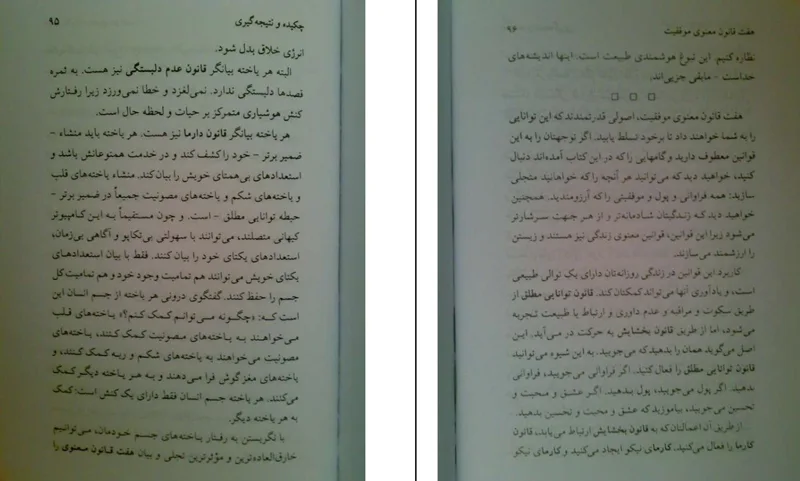 چکیده و نتیجه‌گیری ۹۵
انرژی خلاق بدل شود.
البته هر یاخته بیانگر قانون عدم دلبستگی نیز هست. به ثمره
قصدها دلبستگی ندارد. نمی‌لغزد و خطا نمی‌ورزد زیرا رفتارش
کنش هوشیاری متمرکز بر حیات و لحظه حال است.
هر یاخته بیانگر قانون دارما نیز هست. هر یاخته باید منشاء –
ضمیر برتر – خود را کشف کند و در خدمت همنوعانش باشد و
استعدادهای بی‌همتای خویش را بیان کند. منشاء یاخته‌های قلب
و یاخته‌های شکم و یاخته‌های مصونیت جمیعاً در ضمیر برتر –
حیطه توانایی مطلق – است. و چون مستقیماً به این کامپیوتر
کیهانی متصلند، می‌توانند با سهولتی بی‌تکاپو و آگاهی بی‌زمان،
استعدادهای یکتای خود را بیان کنند. فقط با بیان استعدادهای
یکتای خویش می‌توانند هم تمامیت وجود خود و هم تمامیت کل
جسم را حفظ کنند. گفتگوی درونی هر یاخته از جسم انسان این
است که: «چگونه می‌توانم کمک کنم؟» یاخته‌های قلب
می‌خواهند به یاخته‌های مصونیت کمک کنند، یاخته‌های
مصونیت می‌خواهند به یاخته‌های شکم و ریه کمک کنند، و
یاخته‌های مغز گوش فرا می‌دهند و به هر یاخته دیگر کمک
می‌کنند. هر یاخته جسم انسان فقط دارای یک کنش است: کمک
به هر یاخته دیگر.
با نگریستن به رفتار یاخته‌های جسم خودمان، می‌توانیم
خارق‌العاده‌ترین و مؤثرترین تجلی و بیان هفت قانون معنوی را
هفت قانون معنوی موفقیت ۹۶
نظاره کنیم. این نبوغ هوشمندی طبیعت است. اینها اندیشه‌های
خداست – مابقی جزیی‌اند.
هفت قانون معنوی موفقیت، اصولی قدرتمندند که این توانایی
را به شما خواهند داد تا برخود تسلط یابید. اگر توجهتان را به این
قوانین معطوف دارید و گامهایی را که در این کتاب آمده‌اند دنبال
کنید، خواهید دید که می‌توانید هر آنچه را که خواهانید متجلی
سازید: همه فراوانی و پول و موفقیتی را که آرزومندید. همچنین
خواهید دید که زندگیتان شادمانه‌تر و از هر جهت سرشارتر
می‌شود زیرا این قوانین، قوانین معنوی زندگی نیز هستند و زیستن
را ارزشمند می‌سازند.
کاربرد این قوانین در زندگی روزانه‌تان دارای یک توالی طبیعی
است، و یادآوری آنها می‌تواند کمکتان کند. قانون توانایی مطلق از
طریق سکوت و مراقبه و عدم داوری و ارتباط با طبیعت تجربه
می‌شود، اما از طریق قانون بخشایش به حرکت در می‌آید. این
اصل می‌گوید همان را بدهید که می‌جویید. به این شیوه می‌توانید
قانون توانایی مطلق را فعال کنید. اگر فراوانی می‌جویید، فراوانی
بدهید. اگر پول می‌جویید، پول بدهید. اگر عشق و محبت و
تحسین می‌جویید، بیاموزید که عشق و محبت و تحسین بدهید.
از طریق آن اعمالتان که به قانون بخشایش ارتباط می‌یابد، قانون
کارما را فعال می‌کنید. کارمای نیکو ایجاد می‌کنید و کارمای نیکو